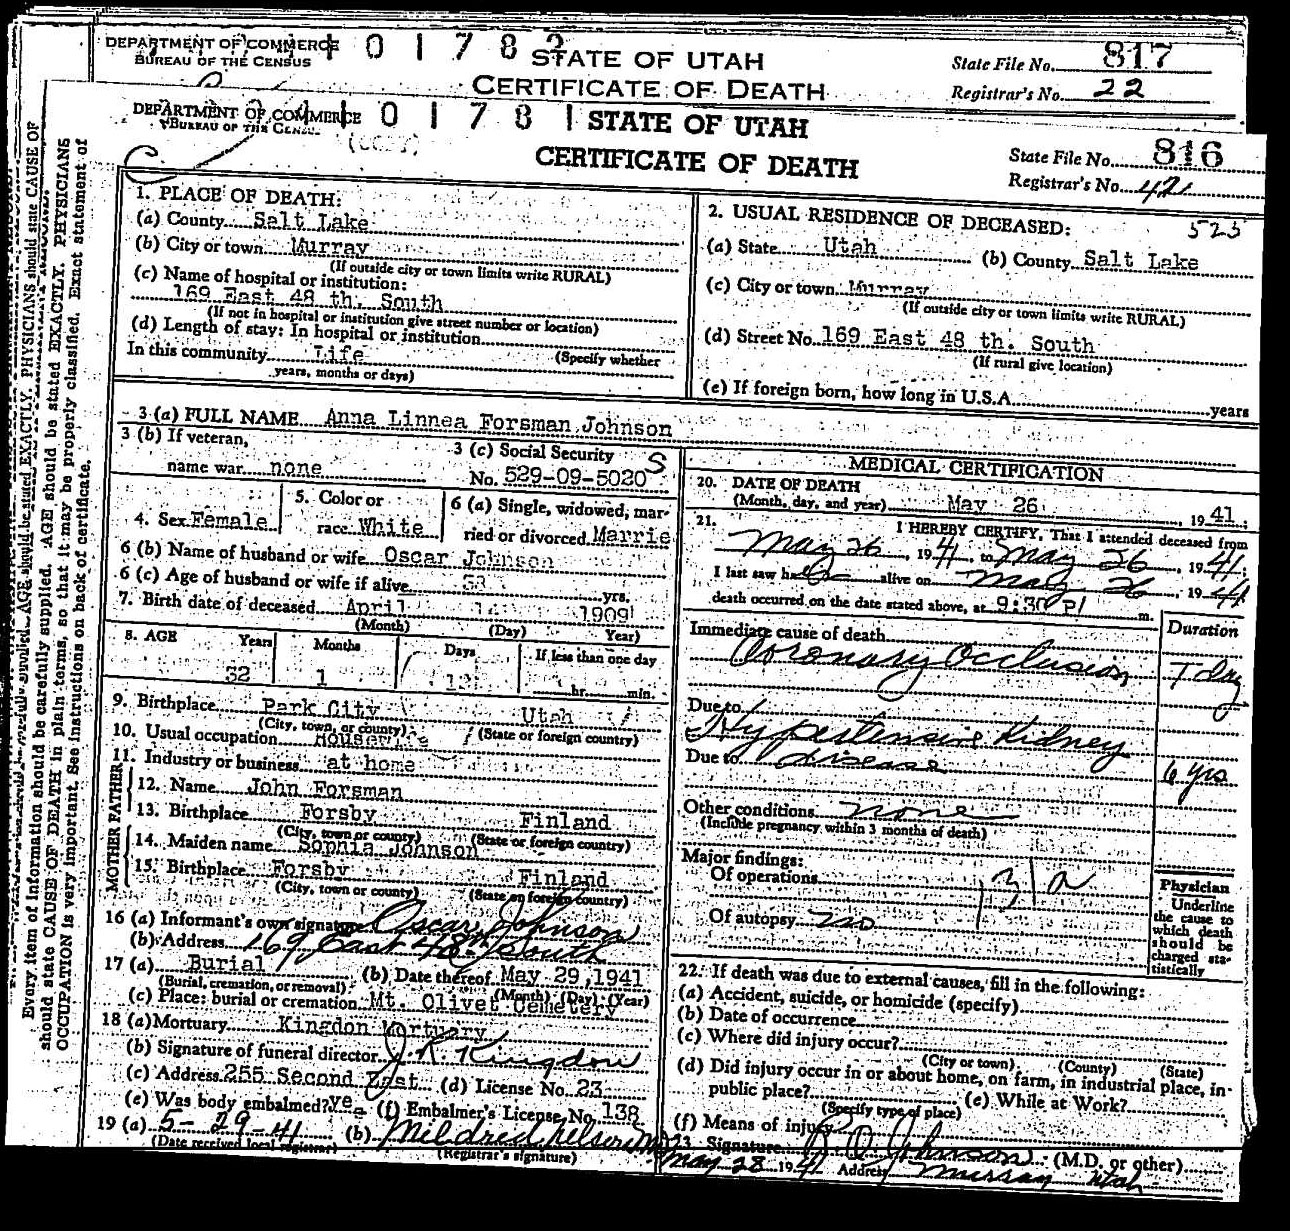 DEPARTMENT OF COMMERCE
BUREAU OF THE CENSUS
101782
STATE OF UTAH
CERTIFICATE OF DEATH
State File No. 817
Registrar's No. 22
DEPARTMENT OF COMMERCE
BUREAU OF THE CENSUS
101781
(COPY)
STATE OF UTAH
CERTIFICATE OF DEATH
State File No. 816
Registrar's No. 42
Every item of information should be carefully supplied. AGE should be stated EXACTLY. PHYSICIANS
should state CAUSE OF DEATH in plain terms, so that it may be properly classified. Exact statement of
OCCUPATION is very important. See instructions on back of certificate.
1. PLACE OF DEATH:
(a) County Salt Lake
(b) City or town Murray
(If outside city or town limits write RURAL)
(c) Name of hospital or institution:
169 East 48 th. South
(If not in hospital or institution give street number or location)
(d) Length of stay: In hospital or institution
(Specify whether
In this community Life
years, months or days)
2. USUAL RESIDENCE OF DECEASED: 525
(a) State Utah (b) County Salt Lake
(c) City or town Murray
(If outside city or town limits write RURAL)
(d) Street No. 169 East 48 th. South
(If rural give location)
(e) If foreign born, how long in U.S.A. years
3 (a) FULL NAME Anna Linnea Forsman Johnson
3 (b) If veteran,
name war none
3 (c) Social Security S
No. 529-09-5020
4. Sex Female
5. Color or
race White
6 (a) Single, widowed, mar-
ried or divorced Marrie
6 (b) Name of husband or wife Oscar Johnson
6 (c) Age of husband or wife if alive yrs.
7. Birth date of deceased April 1909
(Month) (Day) (Year)
8. AGE Years Months Days If less than one day
32 1 hr. min.
9. Birthplace Park City Utah
(City, town, or county) (State or foreign country)
10. Usual occupation Housewife
11. Industry or business at home
FATHER
12. Name John Forsman
13. Birthplace Forsby Finland
(City, town or county) (State or foreign country)
MOTHER
14. Maiden name Sophia Johnson
15. Birthplace Forsby Finland
(City, town or county) (State or foreign country)
16 (a) Informant's own signature Oscar Johnson
(b) Address 169 East 48th South
17 (a) Burial (b) Date thereof May 29,1941
(Burial, cremation, or removal) (Month) (Day) (Year)
(c) Place: burial or cremation Mt. Olivet Cemetery
18 (a) Mortuary Kingdon Mortuary
(b) Signature of funeral director J. R. Kingdon
(c) Address 255 Second East (d) License No. 23
(e) Was body embalmed? yes (f) Embalmer's License No. 138
19 (a) 5-29-41 (b) Mildred Nelson
(Date received local registrar) (Registrar's signature)
MEDICAL CERTIFICATION
20. DATE OF DEATH
(Month, day, and year) May 26 , 1941.
21. I HEREBY CERTIFY, That I attended deceased from
May 26, 1941, to May 26, 1941
I last saw her alive on May 26, 1941
death occurred on the date stated above, at 9:30 P m.
Duration
Immediate cause of death
Coronary Occlusion 1 day
Due to
Hypertensive Kidney
Due to disease 6 yrs
Other conditions none
(Include pregnancy within 3 months of death)
Major findings:
Of operations
131a
Of autopsy no
Physician
Underline
the cause to
which death
should be
charged sta-
tistically
22. If death was due to external causes, fill in the following:
(a) Accident, suicide, or homicide (specify)
(b) Date of occurrence
(c) Where did injury occur?
(City or town) (County) (State)
(d) Did injury occur in or about home, on farm, in industrial place, in-
public place? (e) While at Work?
(Specify type of place)
(f) Means of injury
23. Signature Johnson (M.D. or other)
May 28 1941 Address Murray Utah